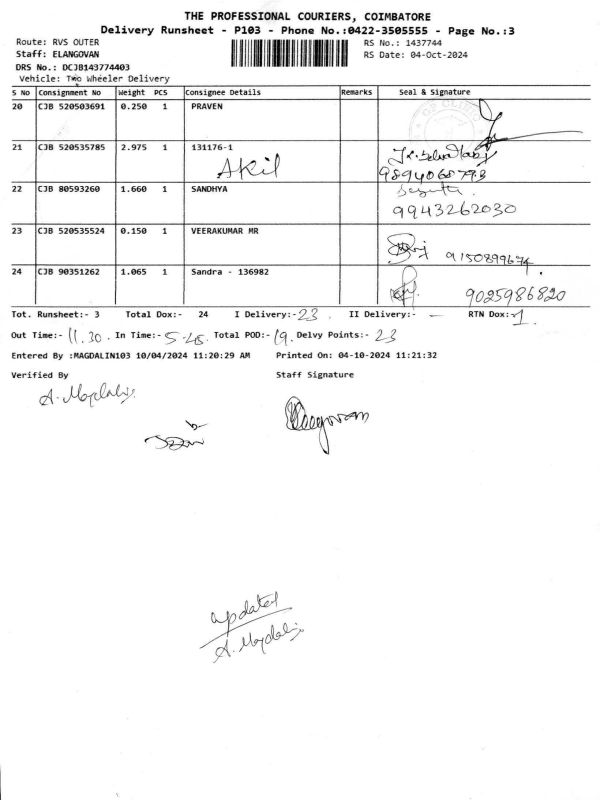 THE PROFESSIONAL COURIERS, COIMBATORE
Delivery Runsheet - P103 - Phone No.:0422-3505555 - Page No.:3
Route: RVS OUTER RS No.: 1437744
Staff: ELANGOVAN RS Date: 04-Oct-2024
DRS No.: DCJB143774403
Vehicle: Two Wheeler Delivery
S No Consignment No Weight PCS Consignee Details Remarks Seal & Signature
20 CJB 520503691 0.250 1 PRAVEN
21 CJB 520535785 2.975 1 131176-1
Akil
9894068793
22 CJB 80593260 1.660 1 SANDHYA
9943262030
23 CJB 520535524 0.150 1 VEERAKUMAR MR
9150899674
24 CJB 90351262 1.065 1 Sandra - 136982
9025986820
Tot. Runsheet:- 3 Total Dox:- 24 I Delivery:- 23 . II Delivery:- — RTN Dox:- 1.
Out Time:- 11.30 . In Time:- 5-45. Total POD:- 19. Delvy Points:- 23
Entered By :MAGDALIN103 10/04/2024 11:20:29 AM Printed On: 04-10-2024 11:21:32
Verified By Staff Signature
A. Magdalin
Elangovan
updated
A. Magdalin